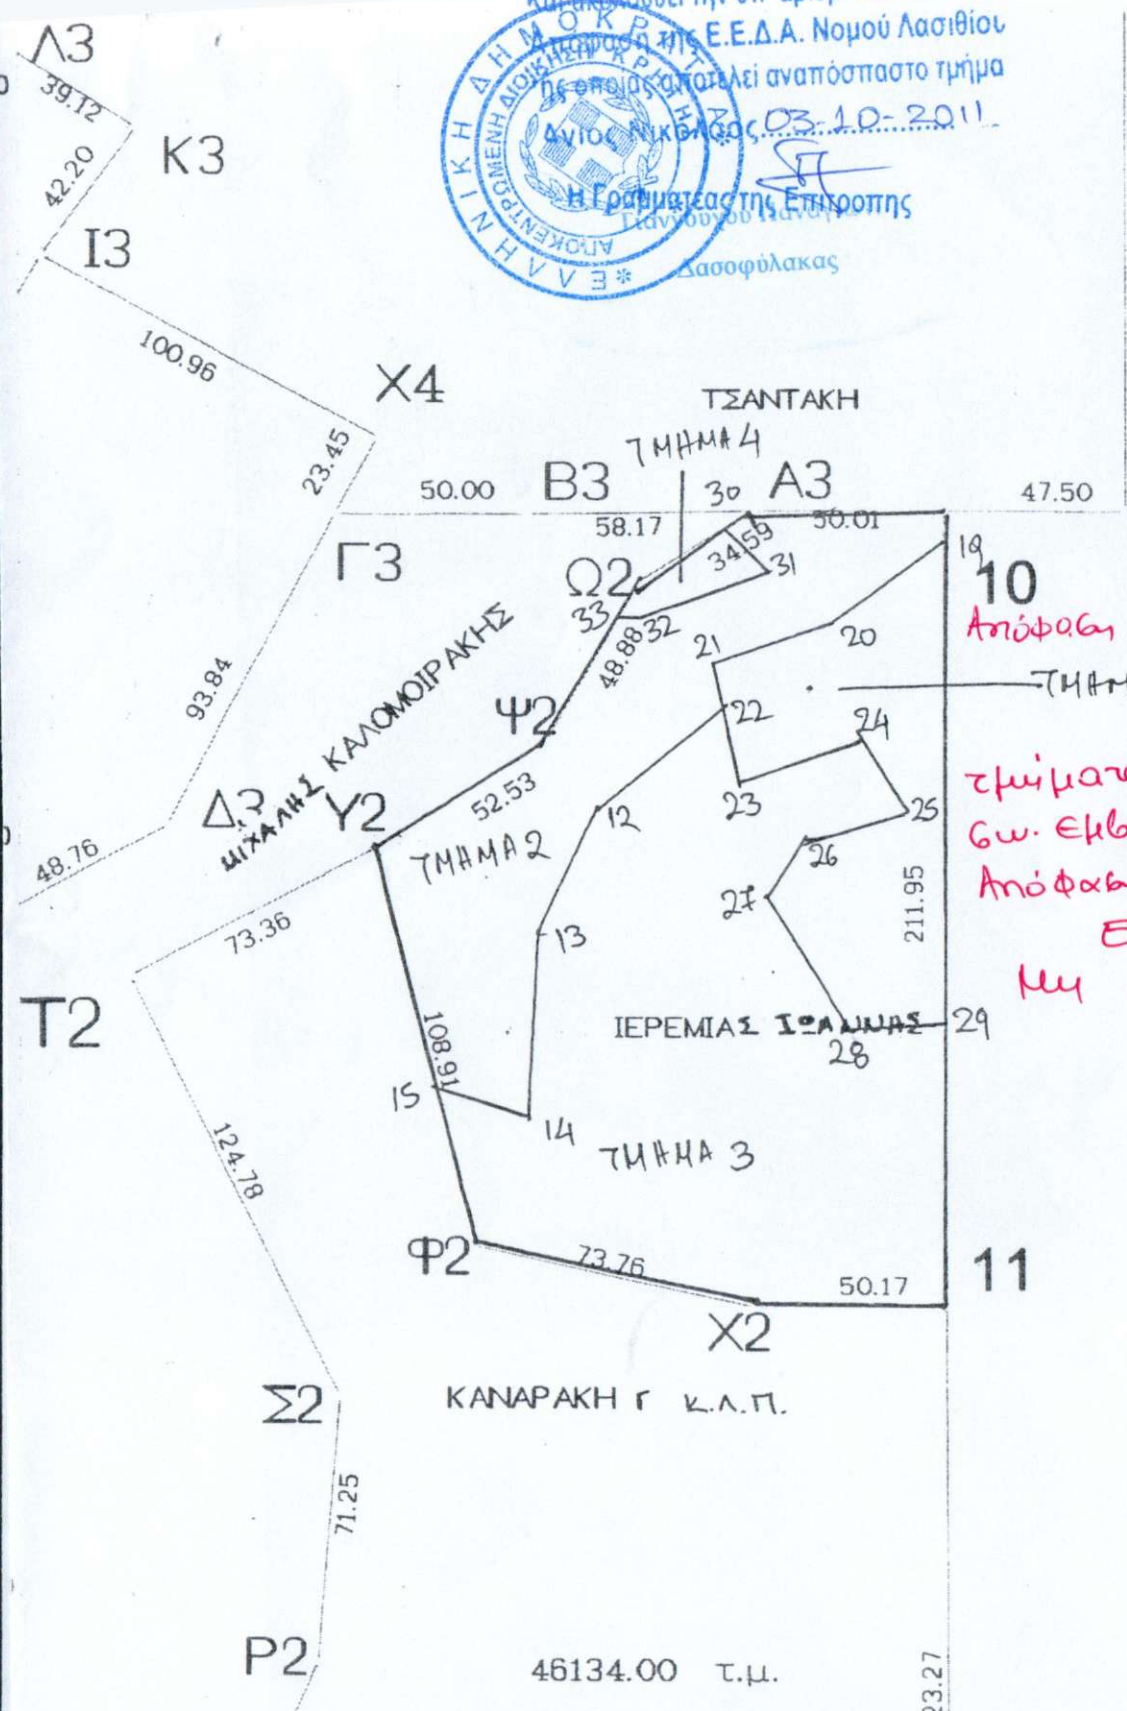 Απόφαση της Ε.Ε.Δ.Α. Νομού Λασιθίου
της οποίας αποτελεί αναπόσπαστο τμήμα
Αγιος Νικόλαος 03-10-2011
Η Γραμματέας της Επιτροπης
Δασοφύλακας
ΕΛΛΗΝΙΚΗ ΔΗΜΟΚΡΑΤΙΑ
ΑΠΟΚΕΝΤΡΩΜΕΝΗ ΔΙΟΙΚΗΣΗ ΚΡΗΤΗΣ
Λ3
39.12
Κ3
42.20
Ι3
100.96
Χ4
23.45
ΤΣΑΝΤΑΚΗ
ΤΜΗΜΑ 4
50.00
Β3
30
Α3
47.50
58.17
50.01
34.59
Γ3
Ω2
31
19
10
33
32
48.88
20
21
Απόφαση
93.84
ΜΙΧΑΛΗΣ ΚΑΛΟΜΟΙΡΑΚΗΣ
Ψ2
22
24
Δ3
Υ2
52.53
23
25
12
26
48.76
ΤΜΗΜΑ 2
27
211.95
73.36
13
Μη
Τ2
108.91
ΙΕΡΕΜΙΑΣ ΙΩΑΝΝΑΣ
28
29
15
14
124.78
ΤΜΗΜΑ 3
Φ2
73.76
50.17
11
Χ2
Σ2
ΚΑΝΑΡΑΚΗ Γ Κ.Λ.Π.
71.25
Ρ2
46134.00 τ.μ.
23.27